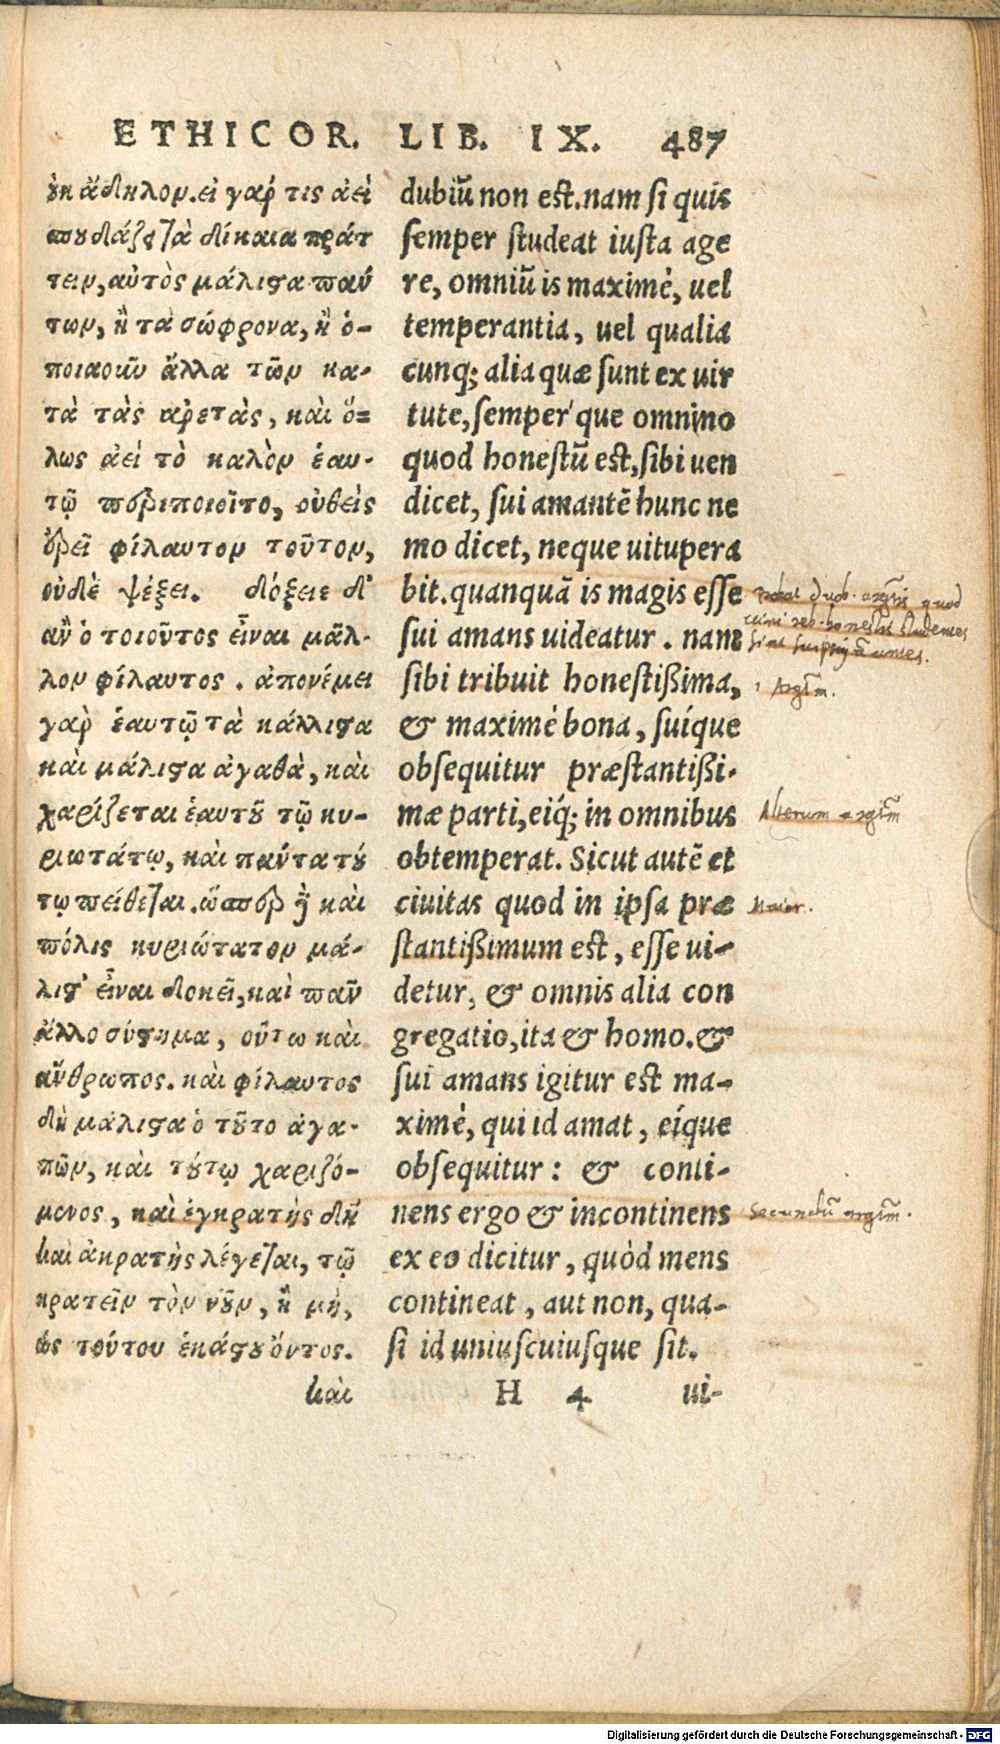 ETHICOR. LIB. IX. 487
ȣκ ἄδηλον. εἰ γάρ τις ἀεὶ
σπουδάζοι τὰ δίκαια πράτ
τειν, αὐτὸς μάλιϛα πάν
των, ἢ τὰ σώφρονα, ἢ ὁ-
ποιαοῦν ἄλλα τῶν κα-
τὰ τὰς ἀρετὰς, καὶ ὅ=
λως ἀεὶ τὸ καλὸν ἑαυ-
τῷ περιποιοῖτο, οὐθεὶς
ἐρεῖ φίλαυτον τοῦτον,
οὐδὲ ψέξει. δόξειε δ'
ἂν ὁ τοιοῦτος εἶναι μᾶλ-
λον φίλαυτος. ἀπονέμει
γὰρ ἑαυτῷ τὰ κάλλιϛα
καὶ μάλιϛα ἀγαθὰ, καὶ
χαρίζεται ἑαυτȣ τῷ κυ-
ριωτάτῳ, καὶ πάντα τȣ́
τῳ πείθεται. ὥσπερ δὲ καὶ
πόλις κυριώτατον μά-
λιϛ' εἶναι δοκεῖ, καὶ πᾶν
ἄλλο σύϛημα, οὕτω καὶ
ἄνθρωπος. καὶ φίλαυτος
δὴ μάλιϛα ὁ τȣ͂το ἀγα-
πῶν, καὶ τȣ́τῳ χαριζό-
μενος, καὶ ἐγκρατὴς δὴ
καὶ ἀκρατὴς λέγεται, τῷ
κρατεῖν τὸν νȣ͂ν, ἢ μὴ,
ὡς τούτου ἑκάϛȣ ὄντος.
καὶ
dubiũ non est. nam si quis
semper studeat iusta age
re, omniũ is maximè, uel
temperantia, uel qualia
cunq; alia quæ sunt ex uir
tute, semper'que omnino
quod honestũ est, sibi uen
dicet, sui amantẽ hunc ne
mo dicet, neque uitupera
bit. quanquã is magis esse
sui amans uideatur. nam
sibi tribuit honestißima,
& maximè bona, suíque
obsequitur præstantißi-
mæ parti, eiq́; in omnibus
obtemperat. Sicut autẽ et
ciuitas quod in ipsa præ
stantißimum est, esse ui-
detur, & omnis alia con
gregatio, ita & homo. &
sui amans igitur est ma-
ximè, qui id amat, eíque
obsequitur: & conti-
nens ergo & incontinens
ex eo dicitur, quòd mens
contineat, aut non, qua-
si id uniuscuiusque sit.
H 4 ui-
quod
honestis studentes
1 Argtm̃.
Alterum argtm̃
Maior.
Secundũ argtm̃.
Digitalisierung gefördert durch die Deutsche Forschungsgemeinschaft - DFG